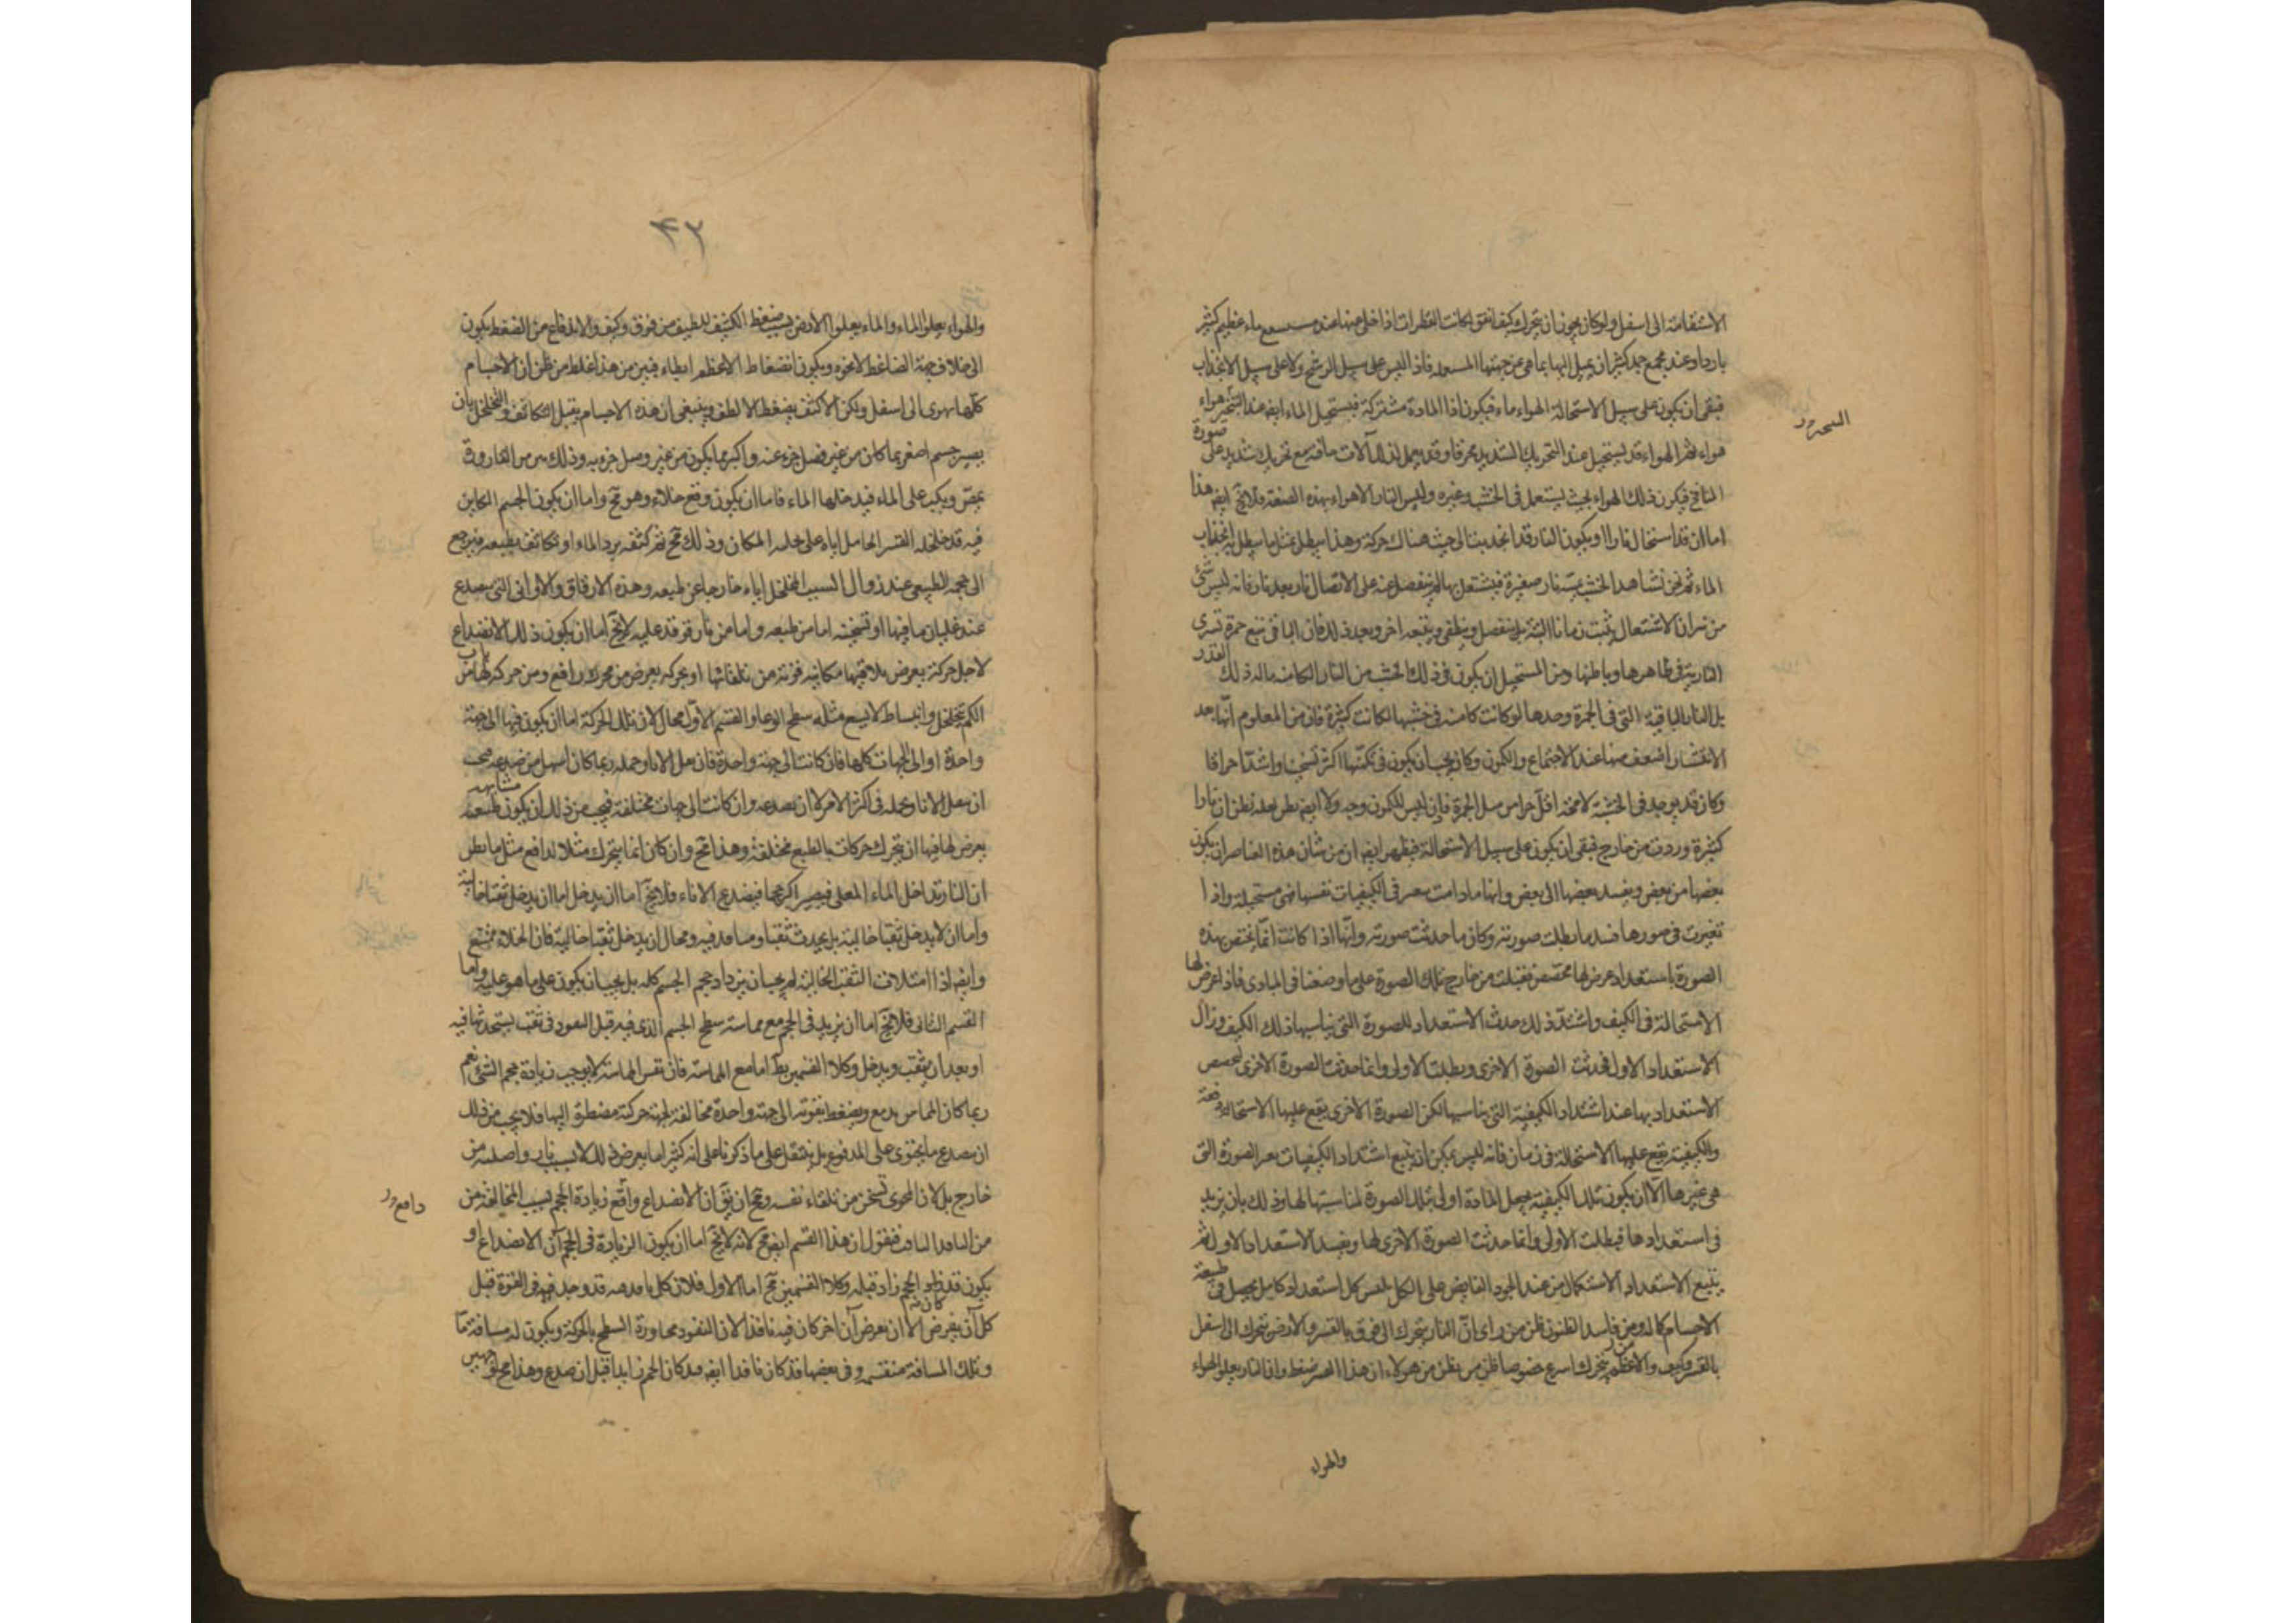 الاستقامة الى اسفل ولو كان يجوز ان يتحرك كيف اتفق لكانت القطرات اذا خلى عنها عند مستنقع ماء عظيم كثير
باردا وعند مجمع جمد كثير ان يميل اليها بما هى عن جهتها فاذا ليس على سبيل الرشح ولا على سبيل الانجذاب
فبقى ان يكون على سبيل الاستحالة الهواء ماء فيكون اذا المادة مشتركة فيستحيل الماء ايضا عند التبخر هواء
هواء ثم الهواء قد يستحيل عند التحريك الشديد محرقا وقد يعمل لذلك آلات حاقنة مع تحريك شديد على صورة
المنافخ فيكون ذلك الهواء بحيث يشتعل فى الخشب وغيره وليس النار الا هواء بهذه الصفة فلا يخ ايضا هذا
اما ان قد استحال نارا او يكون النار قد انجذبت الى حيث هناك حركة وهذا يبطل بمثل ما يبطل به انجذاب
الماء ثم نحن نشاهد الخشب يمسه نار صغيرة فيشتعل بها ثم ينفصل عنه على الاتصال نار بعد نار فانه ليس شئ
من نيران الاشتعال يثبت زمانا البتة بل ينفصل وينطفى ويتبعه اخر وبعد ذلك فان الباقى تبع جمرة تسرى
النارية فى ظاهرها وباطنها ومن المستحيل ان يكون فى ذلك الخشب من النار الكامنة ما له ذلك القدر
بل النار الباقية التى فى الجمرة وحدها لو كانت كامنة فى خشبها لكانت كثيرة فان من المعلوم انها بعد
الانتشار اضعف منها عند الاجتماع والكمون وكان يجب ان يكون فى مكمنها اكثر تسخينا واشد احراقا
وكان قد يوجد فى الخشبة لا محالة اقل احراقا من الجمرة فاذن ليس للكمون وجه ولا ايضا يظن بعد نظن ان نارا
كثيرة وردت من خارج فبقى ان يكون على سبيل الاستحالة فيظهر ايضا ان من شان هذه العناصر ان يكون
بعضها من بعض ويفسد بعضها الى بعض وانها ما دامت يتغير فى الكيفيات نفسها فهى مستحيلة واذا
تغيرت فى صورها فسد ما بطلت صورته وكان ما حدثت صورته وانها اذا كانت انما يختص بهذه
الصورة باستعداد عرض لها مخصص فقبلت من خارج تلك الصورة على ما وضعنا فى المبادى فاذا عرض لها
الاستحالة فى الكيف واشتد ذلك حدث الاستعداد للصورة التى يناسبها ذلك الكيف وزال
الاستعداد الاول فحدثت الصورة الاخرى وبطلت الاولى وانما حدثت الصورة الاخرى لتخصص
الاستعداد بها عند اشتداد الكيفية التى يناسبها لكن الصورة الاخرى يقع عليها الاستحالة دفعة
والكيفية يقع عليها الاستحالة فى زمان فانه ليس يمكن ان يتبع اشتداد الكيفيات تغير الصورة التى
هى غيرها الا ان يكون تلك الكيفية يجعل المادة اولى بتلك الصورة لمناسبتها لها وذلك بان يزيد
فى استعدادها فبطلت الاولى وانما حدثت الصورة الاخرى لها ويفسد الاستعداد الاول ثم
يتبع الاستعداد الاستكمال من عند الجود الفايض على الكل لملبس كل استعداد كامل يحصل فى طبيعة
الاجسام كماله ومن فاسد الظنون ظن من راى ان النار يتحرك الى فوق بالقسر والارض يتحرك الى اسفل
بالقسر وكيف والاعظم يتحرك اسرع خصوصا ظن من يظن من هولاء ان هذا القسر ضغط وان النار يعلو الهواء
التبخر
والهواء
٤٢
والهواء يعلو الماء والماء يعلو الارض بسبب ضغط الكثيف للطيف من فوق وكيف والاندفاع من الضغط يكون
الى خلاف جهة الضاغط لا نحوه ويكون انضغاط الاعظم ابطاء فبين من هذا غلط من ظن ان الاجسام
كلها يهوى الى اسفل ولكن الاكثف يضغط الالطف وينبغى ان هذه الاجسام يقبل التكاثف والتخلخل بان
يصير جسم اصغر مما كان من غير فصل جزء عنه واكبر مما يكون من غير وصل جزء به وذلك من القارورة
يمص ويكب على الماء فيدخلها الماء فاما ان يكون وقع خلاء وهو مح واما ان يكون الجسم الكاين
فيه قد خلخله القسر الحامل اياه على المكان وذلك مح ثم كثفه برد الماء او تكاثف بطبعه فيرجع
الى حجمه الطبيعى عند زوال السبب المخلخل اياه خارجا عن طبيعه وهذه الازقاق والاوانى التى يتصدع
عند غليان ما فيها او تسخينه اما من طبعه واما من نار توقد عليه لا يخ اما ان يكون ذلك الانصداع
لاجل حركة يعرض بلا قيتها مكانيه قوية من تلقائها او بحركه يعرض من محرك دافع ومن حركه لها من باب
الكم بتخلخل وانبساط لا يسع مثله سطح الوعا والقسم الاول محال لان تلك الحركة اما ان يكون فيها الى جهة
واحدة او الى الجهات كلها فان كانت الى جهة واحدة فان نقل الانا وحمله ربما كان اسهل من صدعه فيجب
ان ينقل الانا ويحمله فى اكثر الامر لا ان يصدعه وان كانت الى جهات مختلفة فيجب من ذلك ان يكون طبيعة متشابهه
يعرض لها فيها ان يتحرك حركات بالطبع مختلفة وهذا مح وان كان انما يتحرك مثلا لدافع مثل ما يظن
ان النار تداخل الماء المغلى فيصير اكبر حجما فيصدع الاناء فلا يخ اما ان يدخل اما ان يدخل ثقبا خالية
واما ان لا يدخل ثقبا خالية بل يحدث ثقبا ومنافذ فيه ومحال ان يدخل ثقبا خالية فان الخلاء ممتنع
وايضا اذا امتلات الثقب الخالية لم يجب ان يزداد حجم الجسم كله بل يجب ان يكون على ما هو عليه واما
القسم الثانى فلا يخ اما ان يزيد فى الحجم مع مماسة سطح الجسم الذى فيه قبل النفوذ فى ثقب يستحدثها فيه
او بعد ان يثقب ويدخل وكلا القسمين بط اما مع المماسة فان نفس المماسة لا يوجب زيادة حجم الشئ نعم
ربما كان المماس يدفع ويضغط بقوته الى جهة واحدة مخالفة لجهة حركته مضطرة اليها فلا يجب من ذلك
ان يصدع ما يحتوى على المدفوع بل ينتقل على ما ذكرنا على انه كثيرا ما يعرض ذلك لا بسبب نار واصلة من
خارج بل لان المحوى تسخن من تلقاء نفسه ومح ان يق ان الانصداع واقع زيادة الحجم لسبب المخالفة من
من النافذ النافذ فنقول ان هذا القسم ايضا مح لانه لا يخ اما ان يكون الزيادة فى الحجم آن الانصداع او
يكون قد زاد الحجم زاد قبله وكلا القسمين مح اما الاول فلان كل نافذ قد وجد فى القوة قبل
كل آن يفرض الآن يعرض آن اخر كان فيه نافذا لان النفوذ مجاورة السطح بالحركة ويكون له مسافة ما
وتلك المسافة منقسمه وفى بعضها قد كان نافذا ايضا فكان الحجم زايدا قبل ان صدع وهذا مح
دافع